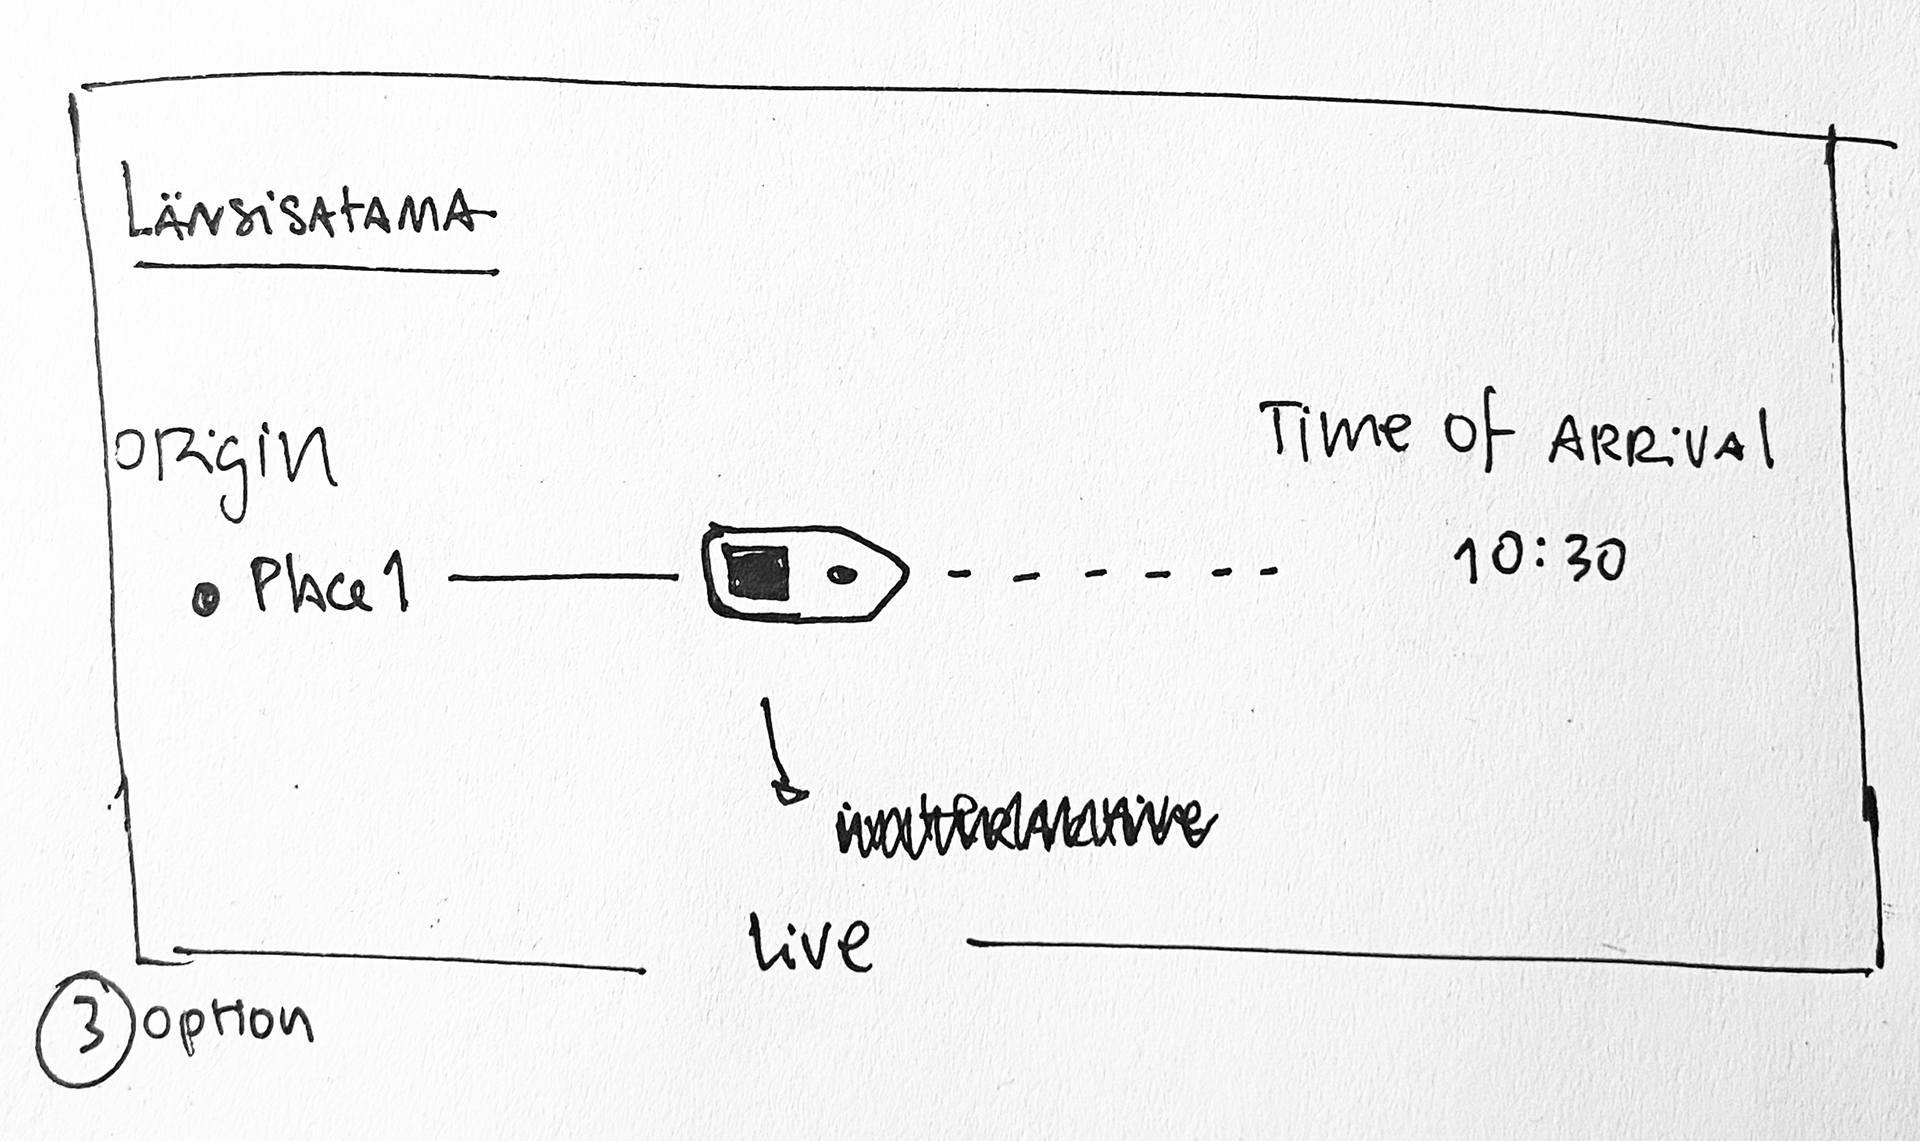 LÄNSISATAMA
ORigin
Time of ARRiVAl
• Place 1
10:30
live
3 option